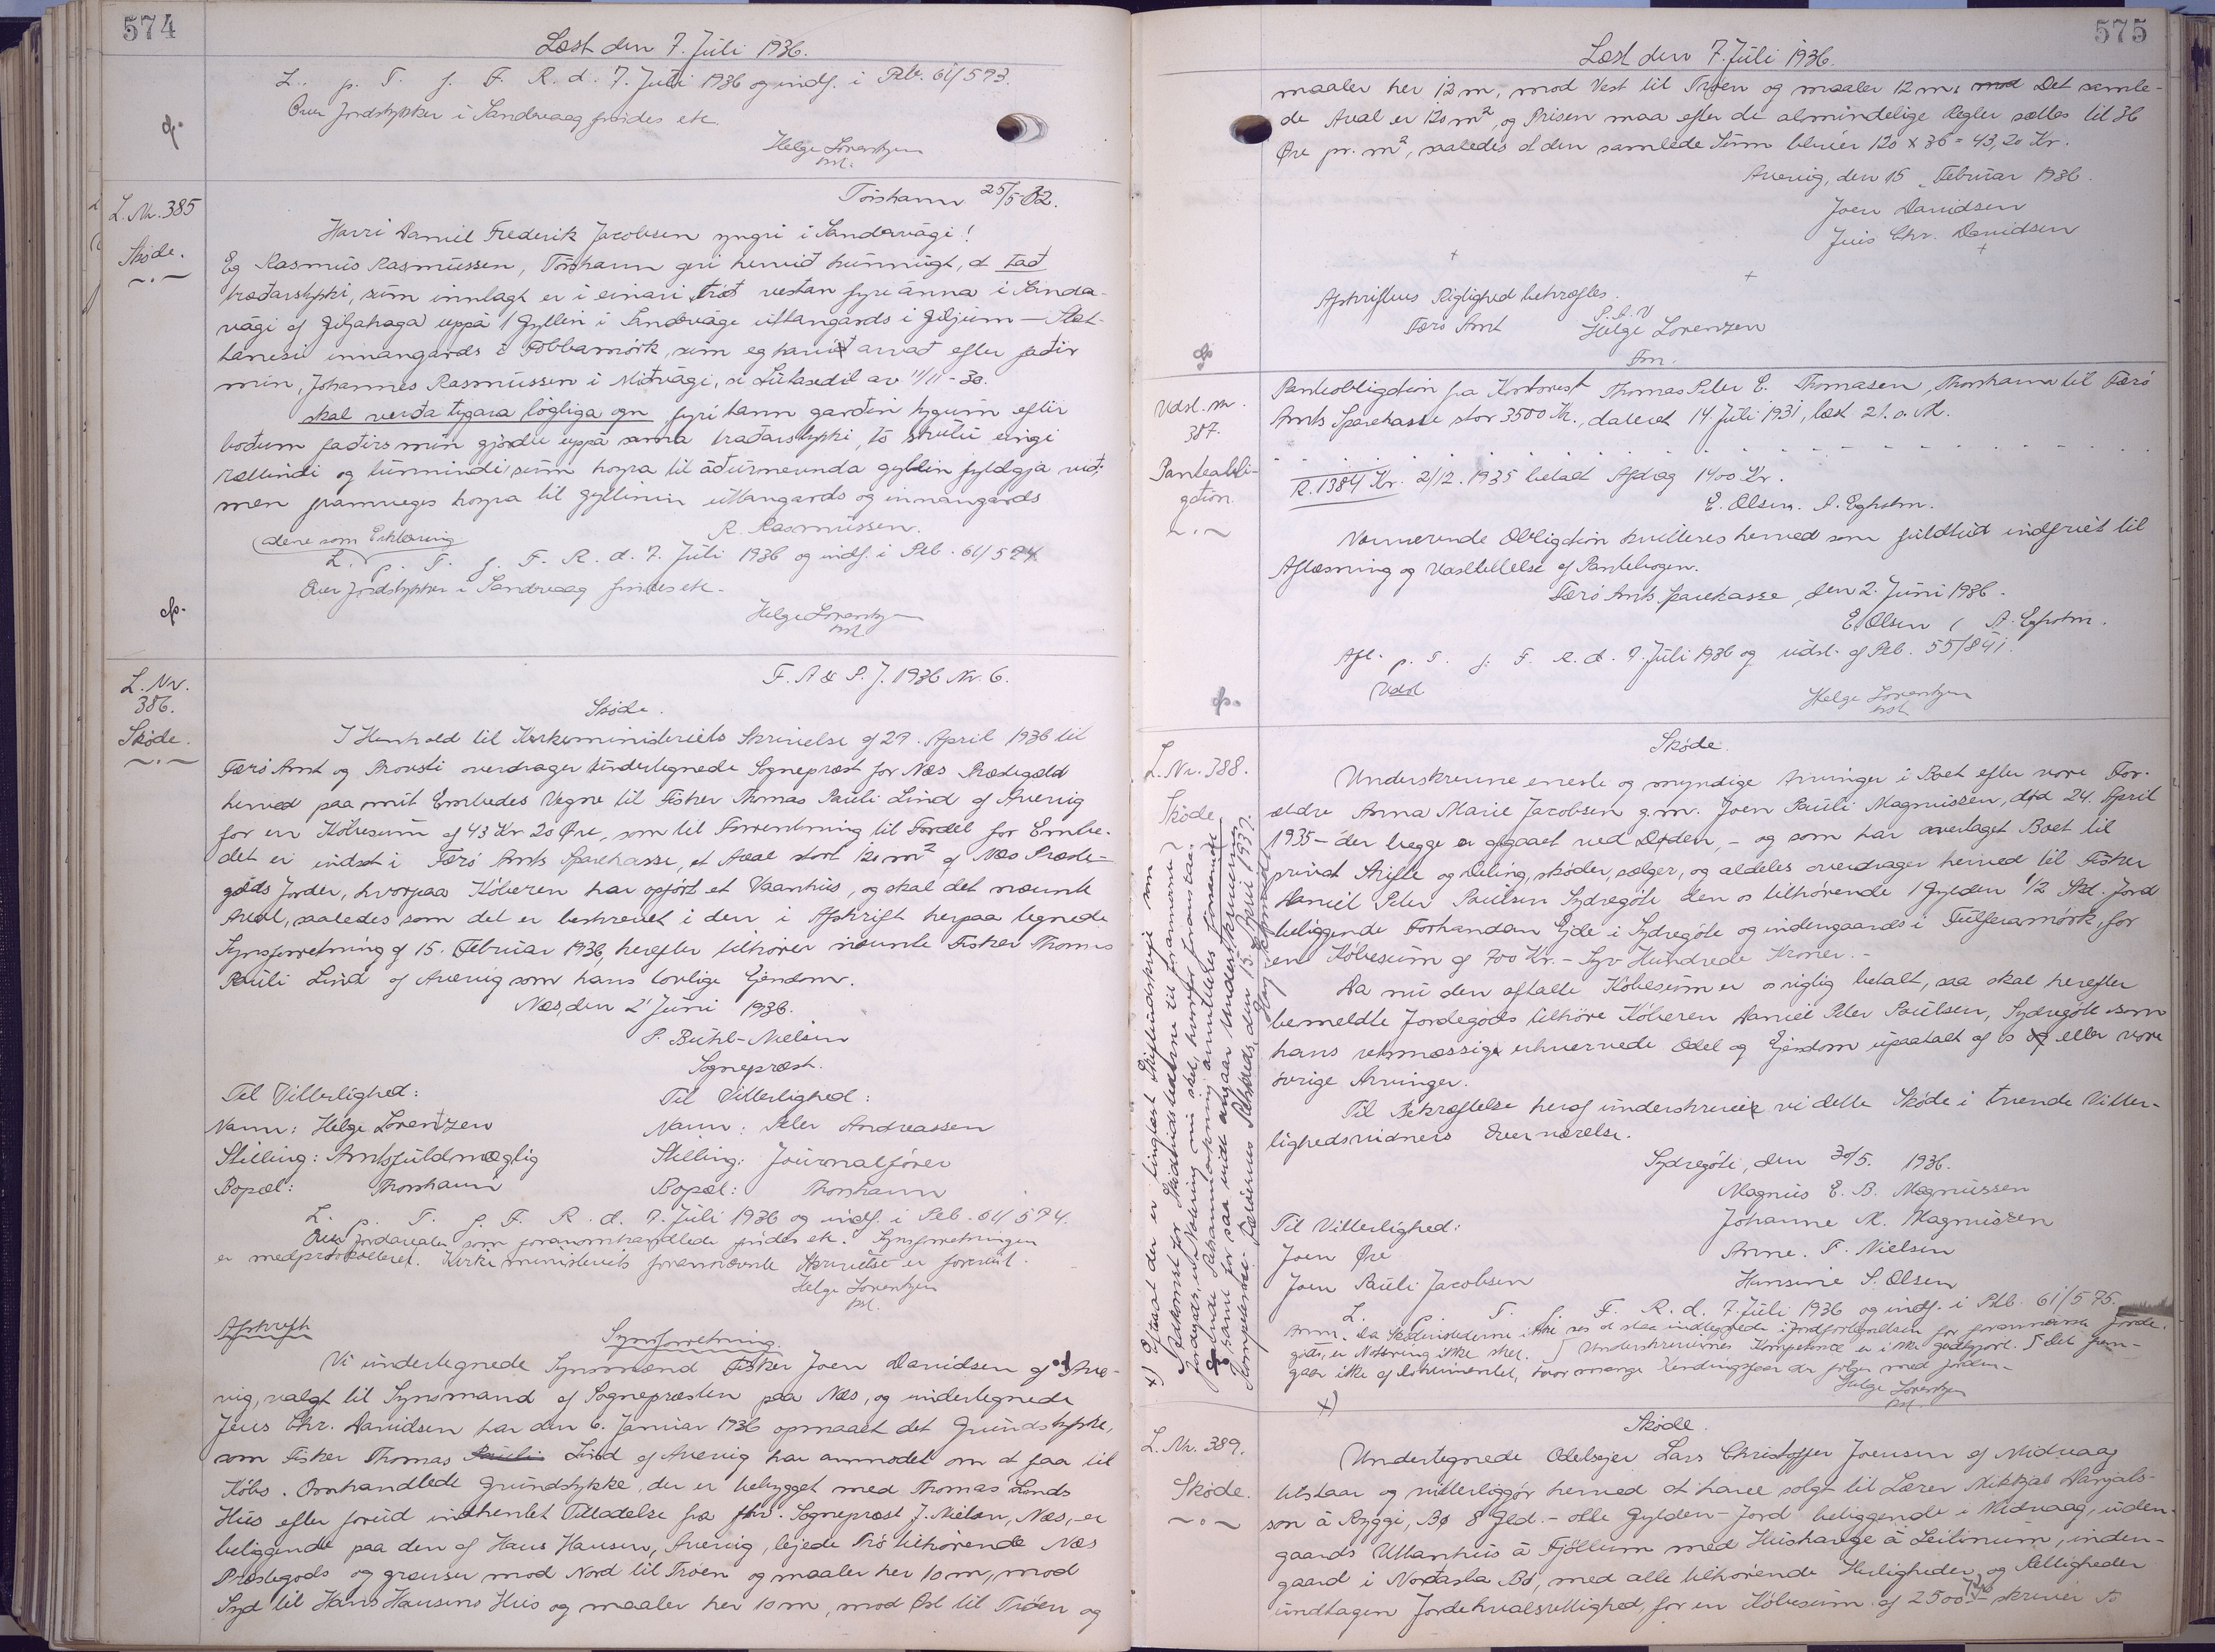 574
Læst den 7. Juli 1936.
L. p. T. f. F. R. d. 7. Juli 1936 og indf. i Pb. 61/593.
Over Jordstykker i Sandvaag findes etc.
Helge Lorentzen
L. Nr. 385
Skøde.
Tórshavn 25/5-32.
Harri Daniel Frederik Jacobsen yngri i Sandavági!
Eg Rasmus Rasmussen, Tórshavn geri herviđ kunnugt, at tađ
trađarstykki, sum innlagt er i einari trøđ vestan fyri ánna i Sanda-
vági af Giljahaga uppá 1 Gyllin i Sandavági uttangards i Giljum —
innangards i Fobbamørk, sum eg havi arvađ eftir fađir
min, Johannes Rasmussen i Miđvági, si Lutasedil av 11/11-30.
skal verđa tygara lógliga ogn fyri tann garđin tygum eftir
bođum fađirs min gjørdu uppá sama trađarstykki, to skulu eingi
rættindi og lunnindi sum hoyra til áđurnevnda gyllin fylgja viđ;
men framveges hoyra til gyllinin uttangards og innangards
R. Rasmussen.
(alene som Erklæring
L. p. T. f. F. R. d. 7. Juli 1936 og indf. i Pb. 61/594.
Over Jordstykker i Sandvaag findes etc.
Helge Lorentzen
L. Nr.
386.
Skøde.
F. A & P. J. 1936 Nr. 6.
Skøde.
I Henhold til Kirkeministeriets Skrivelse af 29. April 1936 til
Færø Amt og Provsti overdrager undertegnede Sognepræst for Næs Præstegæld
herved paa mit Embedes Vegne til Fisker Thomas Pauli Lind af Avevig
for en Købesum af 43 Kr 20 Øre, som til Forrentning til Fordel for Embe-
det er indsat i Færø Amts Sparekasse, et Areal stort 120 m² af Næs Præste-
gælds Jorder, hvorpaa Køberen har opført et Vaanhus, og skal det nævnte
Areal, saaledes som det er beskrevet i den i Afskrift herpaa tegnede
Synsforretning af 15. Februar 1936, herefter tilhører nævnte Fisker Thomas
Pauli Lind af Avevig som hans lovlige Ejendom.
Næs, den 2' Juni 1936.
P. Buhl-Nielsen
Sognepræst.
Til Vitterlighed: Til Vitterlighed:
Navn: Helge Lorentzen Navn: Peter Andreassen
Stilling: Amtsfuldmægtig Stilling: Journalfører
Bopæl: Thorshavn Bopæl: Thorshavn
L. p. T. f. F. R. d. 7. Juli 1936 og indf. i Pb. 61/594.
Over Jordarealer som foranomhandlede findes etc. Synsforretningen
er medprotokolleret. Kirkeministeriets forannævnte Skrivelse er forevist.
Helge Lorentzen
Afskrift
Synsforretning.
Vi undertegnede Synsmænd Fisker Joen Davidsen af Ave-
vig, valgt til Synsmand af Sognepræsten paa Næs, og undertegnede
Jens Chr. Davidsen har den 6. Januar 1936 opmaalt det Grundstykke,
som Fisker Thomas Pauli Lind af Avevig har anmodet om at faa til
Købs. Omhandlede Grundstykke, der er bebygget med Thomas Linds
Hus efter forud indhentet Tilladelse fra fhv. Sognepræst J. Nielsen, Næs, er
beliggende paa den af Hans Hansen, Avevig, lejede Trø tilhørende Næs
Præstegods og grænser mod Nord til Trøen og maaler her 10 m, mod
Syd til Hans Hansens Hus og maaler her 10 m, mod Øst til Trøen og
575
Læst den 7. Juli 1936.
maaler her 12 m, mod Vest til Trøen og maaler 12 m. mod Det samle-
de Areal er 120 m², og Prisen maa efter de almindelige Regler sættes til 36
Øre pr. m², saaledes at den samlede Sum bliver 120 x 36 = 43,20 Kr.
Avevig, den 15. Februar 1936.
Joen Davidsen
Jens Chr. Davidsen
Afskriftens Rigtighed bekræftes.
P. A. V
Færø Amt Helge Lorenzen
Fm.
Udsl. nr.
387.
Panteobli-
gation.
Panteobligation fra Kontorist Thomas Peter E. Thomasen, Thorshavn til Færø
Amts Sparekasse stor 3500 Kr., dateret 14. Juli 1931, læst 21. s. M.
R. 1384 Kr. 2/12. 1935 betalt Afdrag 1400 Kr.
E. Olsen. A. Egholm.
Nærværende Obligation kvitteres herved som fuldtud indfriet til
Aflæsning og Udslettelse af Pantebogen.
Færø Amts Sparekasse, den 2. Juni 1936.
E. Olsen / A. Egholm.
Afl. p. T. f. F. R. d. 7. Juli 1936 og udsl. af Pb. 55/841.
Udsl
Helge Lorentzen
L. Nr. 388.
Skøde
Skøde.
Underskrevne eneste og myndige Arvinger i Boet efter vore For-
ældre Anna Marie Jacobsen g.m. Joen Pauli Magnussen, død 24. April
1935 – der begge er afgaaet ved Døden, – og som har overtaget Boet til
privat Skifte og Deling, skøder, sælger, og aldeles overdrager herved til Fisker
Daniel Peter Poulsen Sydregøte den os tilhørende 1 Gylden 1/2 Skl. Jord
beliggende Forhandan Ejde i Sydregøte og indengaards i Tulferamørk, for
en Købesum af 700 Kr. – Syv Hundrede Kroner. –
Da nu den aftalte Købesum er os rigtig betalt, saa skal herefter
bemeldte Jordegods tilhøre Køberen Daniel Peter Poulsen, Sydregøte som
hans retsmæssige erhvervede Odel og Ejendom upaatalt af os og eller vore
øvrige Arvinger.
Til Bekræftelse heraf underskriver vi dette Skøde i tvende Vitter-
lighedsvidners Overværelse.
Sydregøte, den 30/5. 1936.
Magnus E. B. Magnussen
Johanne M. Magnussen
Anne. F. Nielsen
Hansine S. Olsen
Til Vitterlighed:
Joen Øre
Joen Pauli Jacobsen
L. p. T. f. F. R. d. 7. Juli 1936 og indf. i Pb. 61/575.
Anm. Da Skøderistederne ikke ses at staa indtegnede i Jordfortegnelsen for forannævnte Jorde-
gods, er Notering ikke sket. Underskrivernes Kompetence er ikke godtgjort. Det frem-
gaar ikke af Dokumentet, hvor mange Kendingsfaar der følger med Jorden.
Helge Lorentzen
x)
x) Eftersom der er tinglæst Skifteudskrift som
Adkomst for
Jordegods, er Notering nu sket, hvorfor foranstaa-
ende Retsanmærkning annulleres forsaavidt
samt for saa vidt angaar Underskrivernes
Kompetence. Færøernes Retskreds, den 15. April 1937.
L. Nr. 389.
Skøde.
Skøde.
Undertegnede Odelsejer Lars Christoffer Joensen af Midvaag
tilstaar og vitterliggør herved at have solgt til Lærer Mikkjal Danjals-
son á Ryggi, Bø 8 Gld. – otte Gylden – Jord beliggende i Midvaag, uden-
gaards Uttanhus á Fjøllum med Hushauge á Leitinum, inden-
gaard i Norđasta Bø, med alle tilhørende Herligheder og Rettigheder
undtagen Jordehvalsrettighed, for en Købesum af 2500 – skriver to